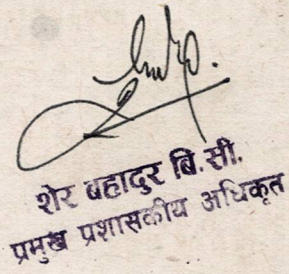 शेर बहादुर बि.सी.
प्रमुख प्रशासकीय अधिकृत